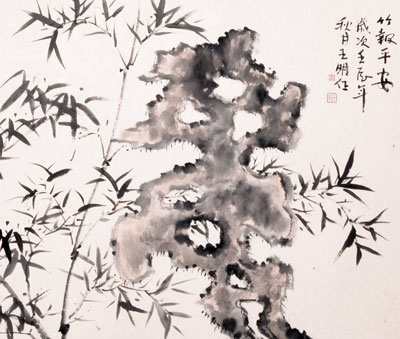 竹報平安
歲次壬辰年
秋月王明